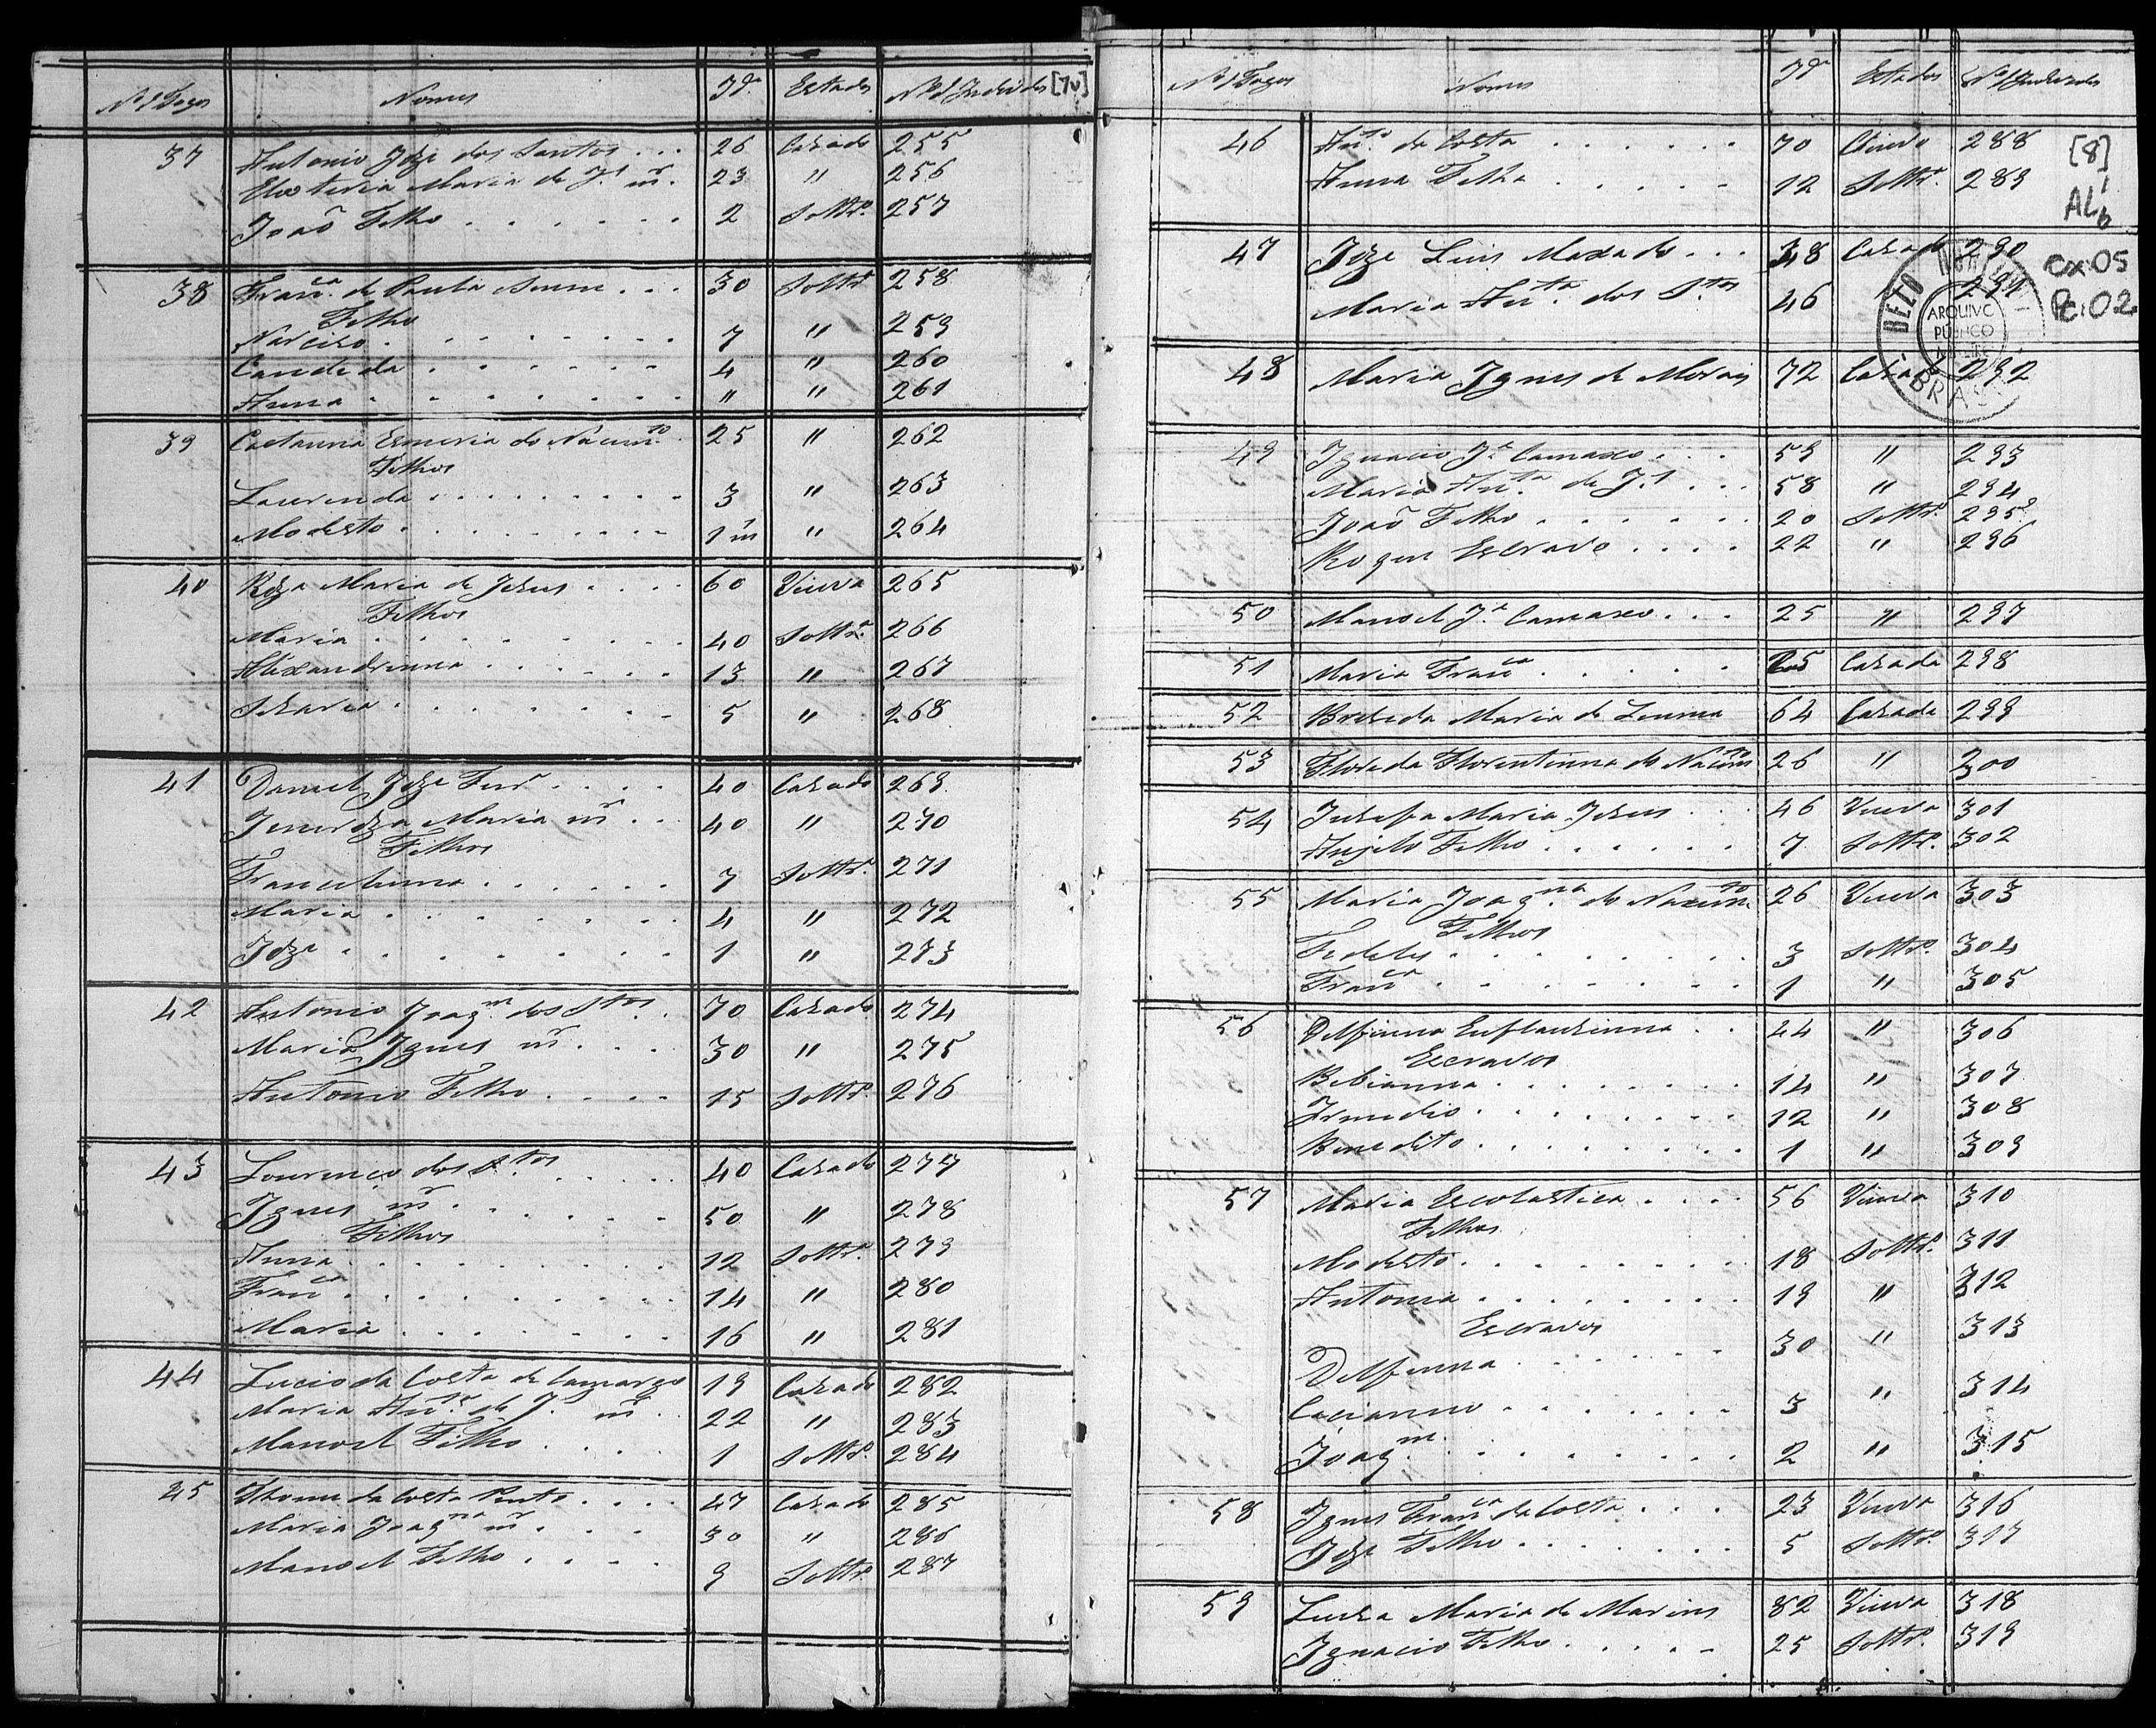 Nº d Fogos Nomes Idᵉ Estados Nº d Individos [7v]
37 Antonio Joze dos Santos . . . 26 Cazado 255
Eleoteria Maria de J.ˢ mʳ. 23 " 256
João Filho . . . . . . 2 Soltrº 257
38 Franᶜᵃ. de Paula . . . 30 Soltrª 258
Filho
Narcizo . . . . . . . 7 " 259
Candida . . . . . . 4 " 260
Anna . . . . . . . " " 261
39 Caetanna Esmeria do Nacimᵗᵒ. 25 " 262
Filhos
Laurinda . . . . . . . . 3 " 263
Modesto . . . . . . . . 1 m " 264
40 Roza Maria de Jesus . . . . 60 Viuva 265
Filhos
Maria . . . . . . . . 40 Soltrª. 266
Alixandrinna . . . . . . 13 " 267
Zeharia . . . . . . . . 5 " 268
41 Daniel Joze Ferʳ . . . . 40 Cazado 269
Jeneroza Maria mʳ . . 40 " 270
Filhos
Francelinna . . . . . . 7 Soltrº. 271
Maria . . . . . . . . 4 " 272
Joze . . . . . . . . . 1 " 273
42 Antonio Joaqᵐ dos Sᵗᵒˢ . 70 Cazado 274
Maria Ignes mʳ . . . 30 " 275
Antonio Filho . . . . 15 Soltrº. 276
43 Lourenco dos Sᵗᵒˢ . . . . . 40 Cazado 277
Ignes mʳ . . . . . . 50 " 278
Filhos
Anna . . . . . . . . . 12 Soltrº. 279
Franᶜᵒ . . . . . . . . 14 " 280
Maria . . . . . . . 16 " 281
44 Lucio da Costa de Camargo 19 Cazado 282
Maria Anᵗᵃ. de J.ˢ mʳ . 22 " 283
Manoel Filho . . . . 1 Soltrº. 284
45 Thome da Costa Pinto . . . . 47 Cazado 285
Maria Joaqⁿᵃ mʳ . . . . 30 " 286
Manoel Filho . . . . . 9 Soltrº 287
Nº d Fogos Nomes Idᵉ Estados Nº d Individos
46 Anᵗᵒ. da Costa . . . . . . 70 Viuvo 288 [8]
Anna Filha . . . . . 12 Soltrª. 289
AL 1 6
47 Joze Luis Maxado . . . 48 Cazado 290 cx.05
Maria Anᵗᵃ. dos Sᵗᵒˢ 46 " 291 Pc.02
BELO
ARQUIVO
PUBLICO
BRAS
48 Maria Ignes de Morais 72 Caza 292
49 Ignacio Jᵉ Camaxo . . . 59 " 293
Maria Anᵗᵃ de J.ˢ . . . 58 " 294
João Filho . . . . . . 20 Soltrº. 295
Roque Escravo . . . . 22 " 296
50 Manoel Jᵉ. Camaxo . . . 25 " 297
51 Maria Franᶜᵃ . . . . . 25 Cazada 298
52 Brizida Maria de 64 Cazada 299
53 Florinda Florentinna do Nacimᵗᵒ 26 " 300
54 Juzefa Maria Jesus . . 46 Viuva 301
Anjelo Filho . . . . . . 7 Soltrº. 302
55 Maria Joaqⁿᵃ. do Nacimᵗᵒ 26 Viuva 303
Filhos
Fidelis . . . . . . . . . 3 Soltrº. 304
Franᶜᵒ . . . . . . . . . 1 " 305
56 Delfinna Eufrauzinna . . 24 " 306
Escravos
Bibianna . . . . . . . . 14 " 307
Irmidio . . . . . . . . 12 " 308
Benedito . . . . . . . . 1 " 309
57 Maria Escolastica . . . . 56 Viuva 310
Filhos
Modesto . . . . . . . . . 18 Soltrº. 311
Antonia . . . . . . . . 19 " 312
Escravos
Delfinna . . . . . . . 30 " 313
Cacianno . . . . . . . 3 " 314
Joaqᵐ. . . . . . . . . 2 " 315
58 Ignes Franᶜᵃ da Costa . . . 23 Viuva 316
Joze Filho . . . . . . . 5 Soltrº. 317
59 Luiza Maria de Marins 82 Viuva 318
Ignacio Filho . . . . . 25 Soltrº. 319